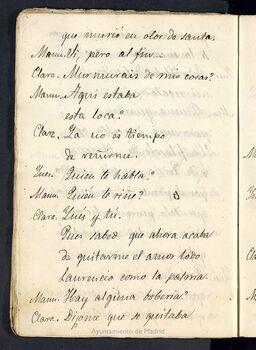 que murió en olor de santa.
Manu. Sí, pero al fin—
Clara. Murmurais de mis cosas?
Manu. Aqui estaba
esta loca?
Clara. Ya no és tiempo
de reñirme.
Ines. Quien te habla?
Manu. Quién te riñe?
Clara. Inés y tú.
Pues sabed que ahora acaba
de quitarme el amor todo
Laurencio como la palma.
Manu. Hay alguna boberia?
Clara. Díjome que si quitaba
Ayuntamiento de Madrid